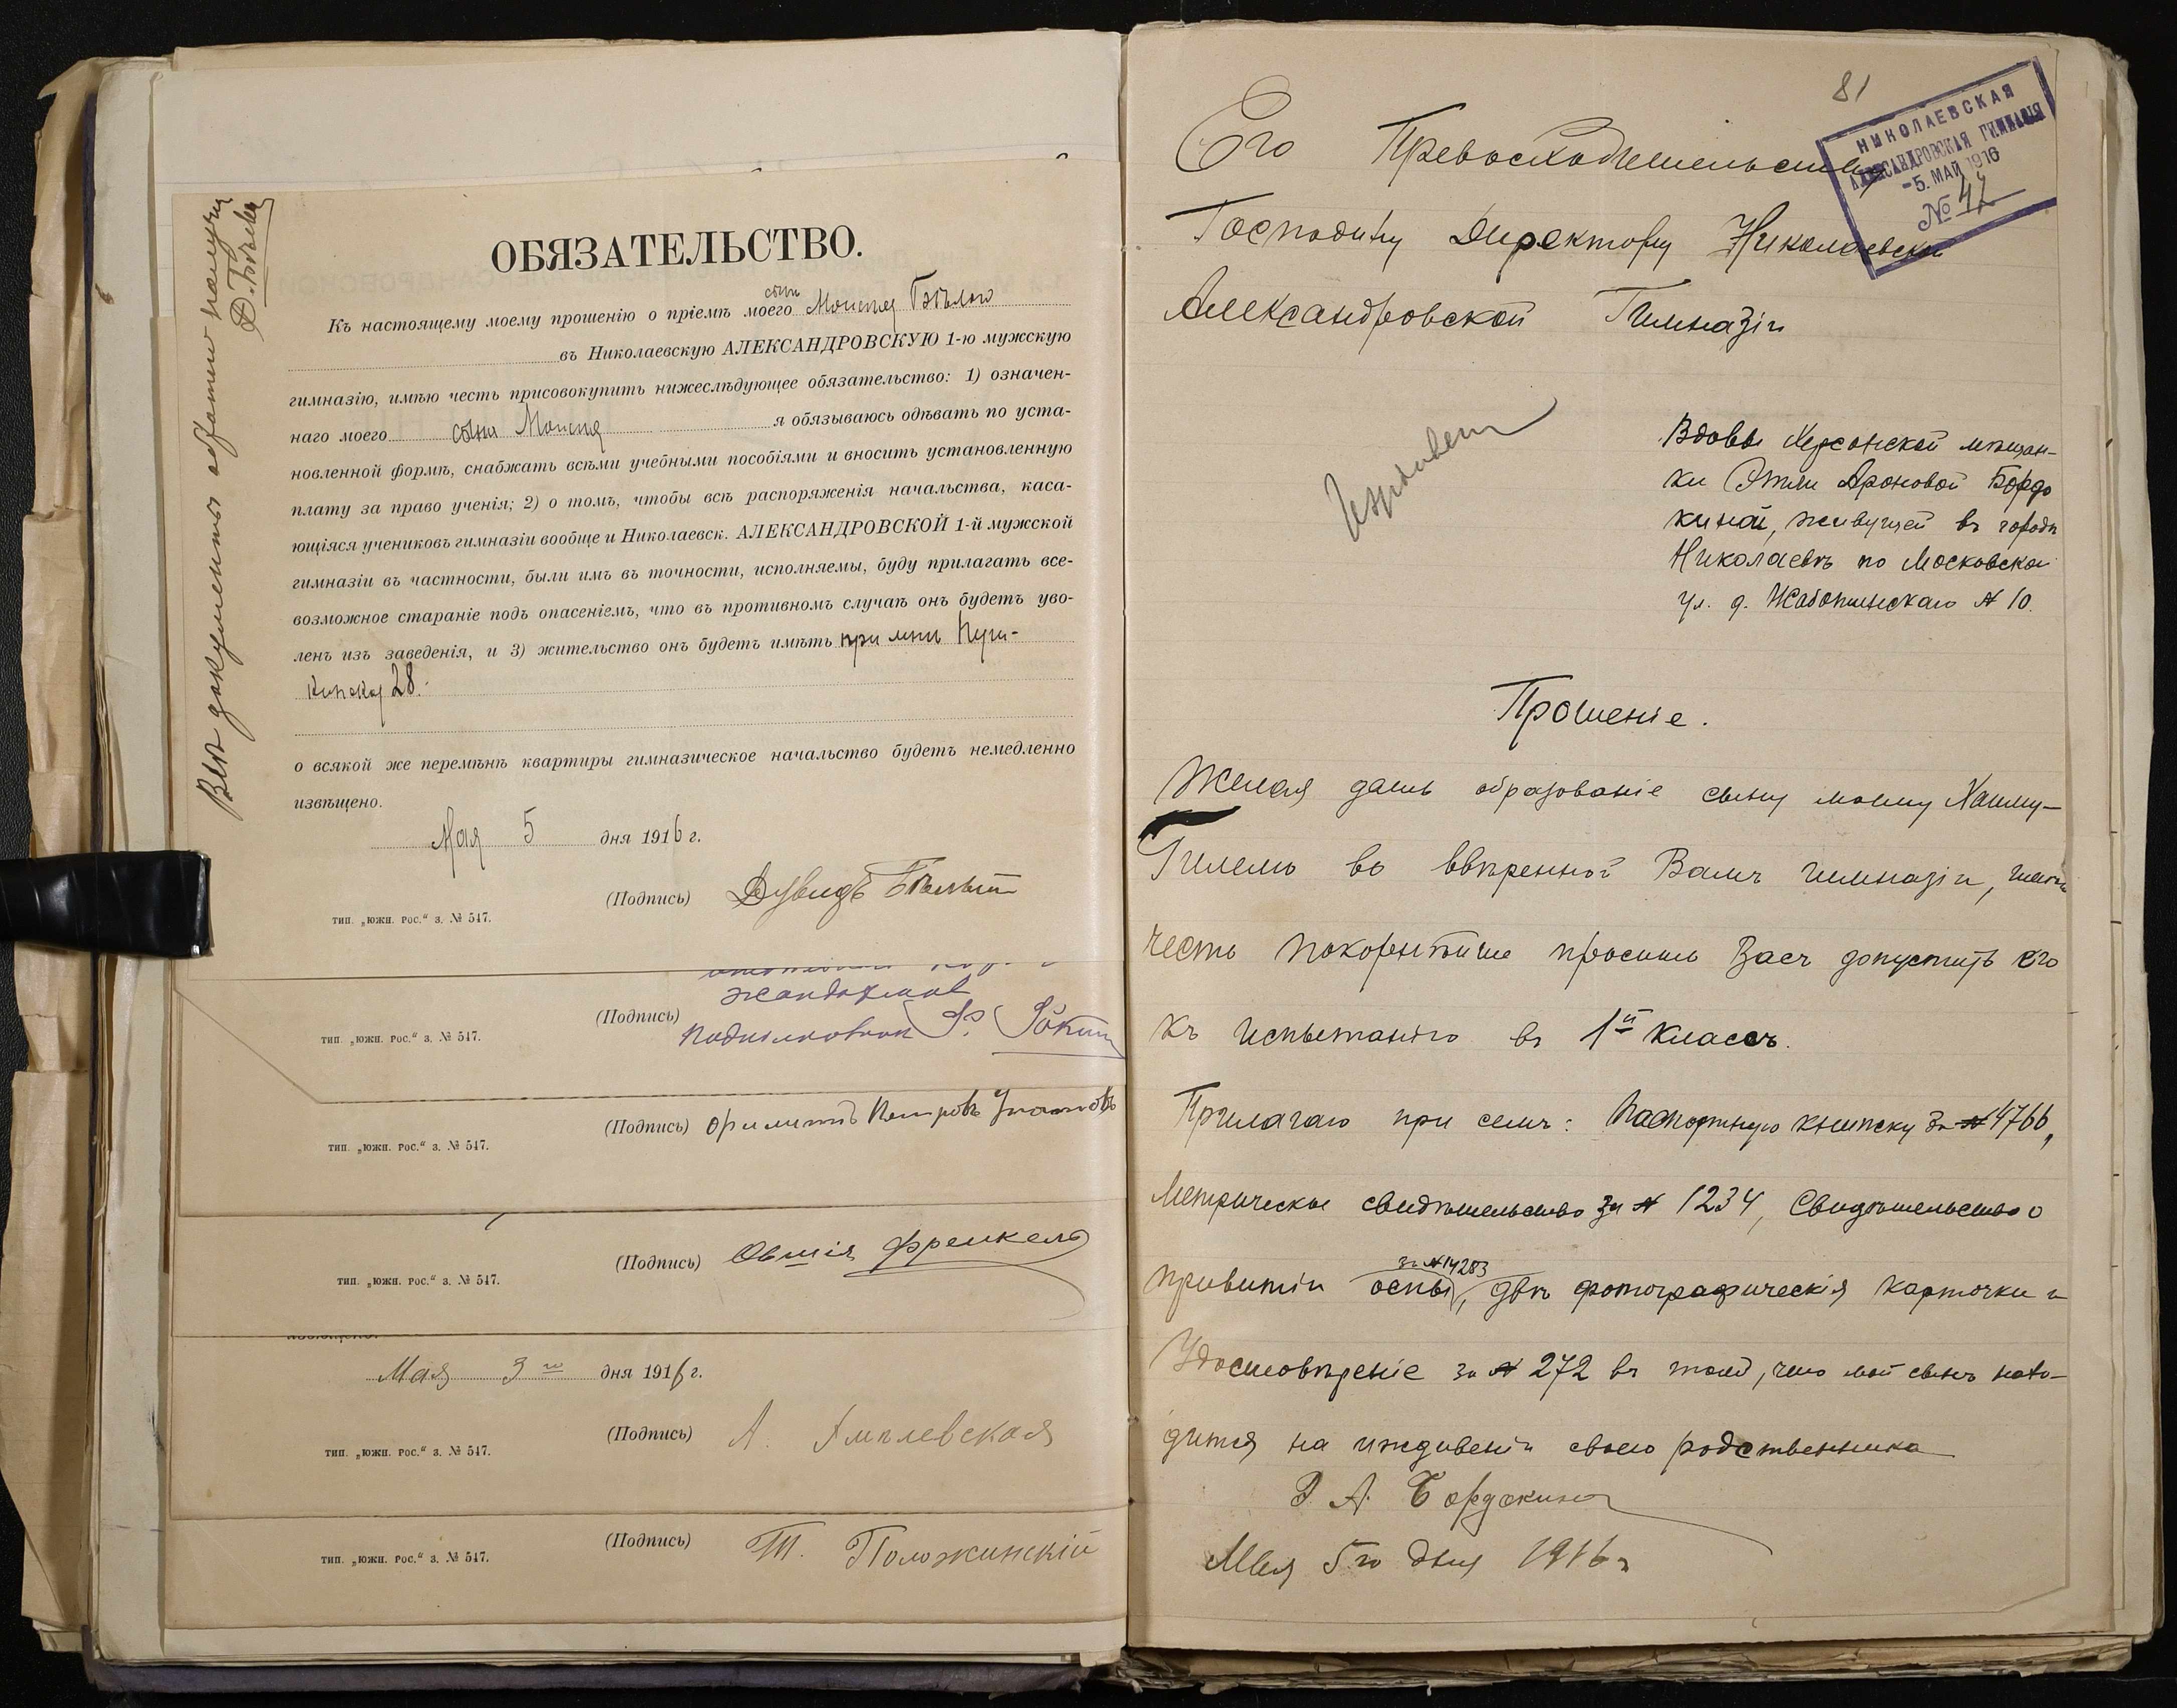 Всѣ документы обратно получилъ
Д. Бѣлый
ОБЯЗАТЕЛЬСТВО.
Къ настоящему моему прошенію о пріемѣ моего сына Моисея Бѣлого
въ Николаевскую АЛЕКСАНДРОВСКУЮ 1-ю мужскую
гимназію, имѣю честь присовокупить нижеслѣдующее обязательство: 1) означен-
наго моего сына Моисея я обязываюсь одѣвать по уста-
новленной формѣ, снабжать всѣми учебными пособіями и вносить установленную
плату за право ученія; 2) о томъ, чтобы всѣ распоряженія начальства, каса-
ющіяся учениковъ гимназіи вообще и Николаевск. АЛЕКСАНДРОВСКОЙ 1-й мужской
гимназіи въ частности, были имъ въ точности, исполняемы, буду прилагать все-
возможное стараніе подъ опасеніемъ, что въ противномъ случаѣ онъ будетъ уво-
ленъ изъ заведенія, и 3) жительство онъ будетъ имѣть при мнѣ
28.
о всякой же перемѣнѣ квартиры гимназическое начальство будетъ немедленно
извѣщено.
Мая 5 дня 1916 г.
(Подпись) Давидъ Бѣлый
тип. „южн. рос.“ з. № 547.
(Подпись) Подполковник Ф.
тип. „южн. рос.“ з. № 547.
(Подпись) Петровъ
тип. „южн. рос.“ з. № 547.
(Подпись) Овшія Френкель
тип. „южн. рос.“ з. № 547.
Мая 3го дня 1916 г.
(Подпись) А.
тип. „южн. рос.“ з. № 547.
(Подпись) Т. Положинскій
тип. „южн. рос.“ з. № 547.
81
НИКОЛАЕВСКАЯ
АЛЕКСАНДРОВСКАЯ ГИМНАЗІЯ
-5. МАЙ 1916
№ 42
Его Превосходительству
Господину Директору Николаевской
Александровской Гимназіи
Вдовы Херсонской мѣщан-
ки Этли Ароновой Бордо
киной, живущей въ городѣ
Николаевѣ по Московской
ул. д. Жаботинскаго № 10.
Прошеніе.
Желая дать образованіе сыну моему Хаиму-
Гилелю во ввѣренной Вамъ гимназіи, имѣю
честь покорнѣйше просить Васъ допустить его
къ испытанію въ 1й классъ.
Прилагаю при семъ: Паспортную книжку за № 4766,
Метрическое свидѣтельство за № 1234, Свидѣтельство о
привитіи оспы за № 14283, двѣ фотографическія карточки и
Удостовѣреніе за № 272 въ томъ, что мой сынъ нахо-
дится на иждивеніи своего родственника
Э. А. Бордокина
Мая 5го дня 1916 г